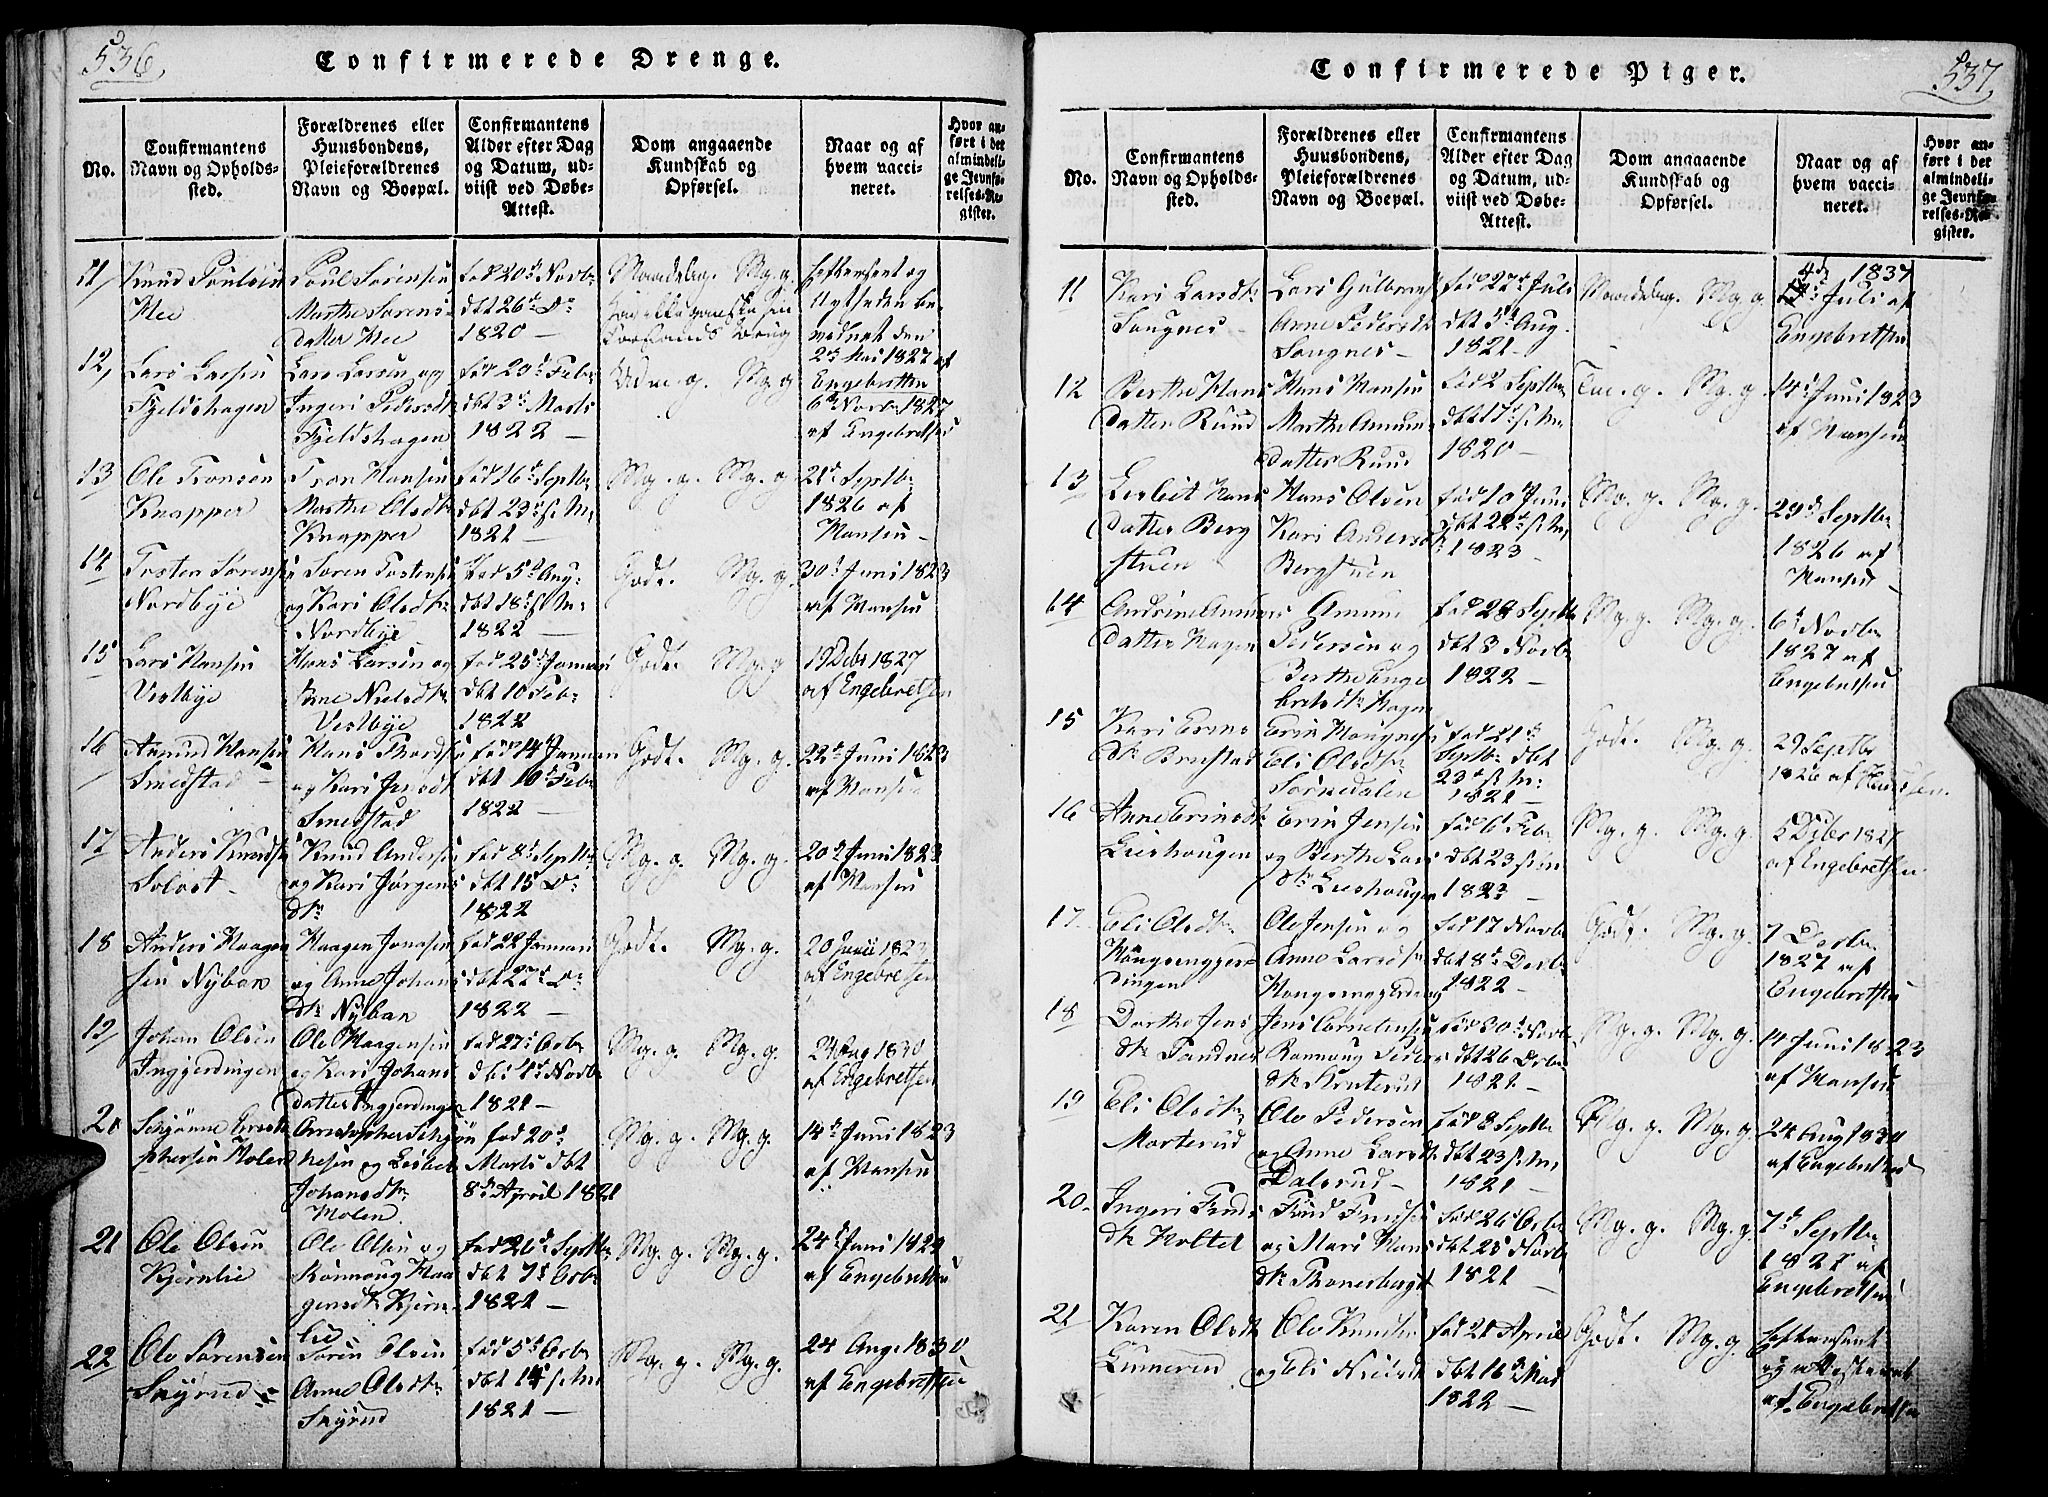 536.
Confirmerede Drenge.
No.
Confirmantens
Navn og Opholds-
sted.
Forældrenes eller
Huusbondens,
Pleieforældrenes
Navn og Boepæl.
Confirmantens
Alder efter Dag
og Datum, ud-
viist ved Døbe-
Attest.
Dom angaaende
Kundskab og
Opførsel.
Naar og af
hvem vacci-
neret.
Hvor an-
ført i det
almindeli-
ge Jevnfø-
relses-Re-
gister.
11/
Mee
Poul Sørensen
Marthe Sørens-
datter Mee
fød 20d Novbr
dbt 26d Do
1820
Maadelig. Mg. g.
23 1827 af
Engebretsen
12,
Lars Larsen
Fjeldshagen
Lars Larsen og
Ingeri Pedersdtr
Fjeldshagen
fød 20d Febr
dbt 3d Marts
1822 —
Udm. g. Mg. g
6d Novbr 1827
af Engebretsen
13
Ole Tronsen
Knapper
Tron Hansen
Marthe Olsdtr
Knapper
fød 16d Septbr
dbt 23d s. M.
1821 —
Mg. g. Mg. g
21d Septbr
1826 af
Hansen —
14
Tosten Sørensen
Nordbye
Søren Tostensen
og Kari Olsdtr
Nordbye
fød 5d Aug.
dbt 18d s. M.
1822 —
Godt. Mg. g.
30d Juni 1823
af Hansen
15
Lars Hansen
Vestbye
Hans Larsen og
Anne Nielsdtr
Vestbye
fød 25d Januari
dbt 10 Feb.
1822
Godt. Mg. g
19 Debr 1827
af Engebretsen
16
Amund Hansen
Smedstad
Hans Thordsen
og Kari Jensdt
Smedstad
fød 14d Januari
dbt 10d Febr
1822 —
Godt. Mg. g.
22d Juni 1823
af Hansen
17
Anders Knudsen
Solost
Knud Andersen
og Kari Jørgens
dtr
fød 8d Septbr
dbt 15 Do
1822
Mg. g. Mg. g.
20d Juni 1823
af Hansen
18
Anders Haagen
sen Nyben
Haagen Jonasen
og Anne Johans
dtr Nyben
fød 22 Januari
dbt 27d Do
1822 —
Godt. Mg. g.
20 Junii 1823
af Engebretsen
19/
Johan Olsen
Inggjerdingen
Ole Haagensen
og Kari Johans
datter Ingjerdingen
1821 —
Mg. g. Mg. g.
24 Aug 1830
af Engebretsen
20
Molen
Johansdtr
Molen.
fød 20d
Marts dbt
8d April 1821
Mg. g. Mg. g.
14d Juni 1823
af Hansen
21
Ole Olsen
Kjernlie
Ole Olsen og
Rønnoug Haa
gensdtr Kjern-
lie
fød 26d Septbr
dbt 7d Octbr
1821 —
Mg. g. Mg. g.
24d Juni 1829
af Engebretsen
22
Ole Sørensen
Skyrud
Søren Olsen
Anne Olsdtr
Skyrud
fød 5d Octbr
dbt 14 s. M
1821 —
Mg. g. Mg. g.
24 Aug. 1830
af Engebretsen
537.
Confirmerede Piger.
No.
Confirmantens
Navn og Opholds-
sted.
Forældrenes eller
Huusbondens,
Pleieforældrenes
Navn og Boepæl.
Confirmantens
Alder efter Dag
og Datum, ud-
viist ved Døbe-
Attest.
Dom angaaende
Kundskab og
Opførsel.
Naar og af
hvem vacci-
neret.
Hvor an-
ført i det
almindeli-
ge Jevnfø-
relses-Re-
gister.
11
Kari Larsdtr
Sougnes
Lars Gulbrans
Anne Pedersdtr
Sougnes —
fød 27d Juli
dbt 5d Aug.
1821 —
Maadelig. Mg. g.
4d 1837
Juli af
Engebretsen
12
Berthe Hans
datter Ruud
Hans Hansen
Marthe Amun-
datter Ruud
fød 2 Septbr
dbt 17d s. M.
1820 —
Tm. g. Mg. g.
14d Juni 1823
af Hansen
13
Hans
datter Berg
stuen
Hans Olsen
Kari Andersd
Bergstuen
fød 10 Juni
dbt 22d s. M.
1823
Mg. g. Mg. g.
29d Septbr
1826 af
Hansen
14
datter Hagen
Amund
Pedersen og
Berthe Enge
bretsdtr Hagen
fød 28 Septbr
dbt 3 Novbr
1822 —
Mg. g. Mg. g.
6d Novbr
1827 af
Engebretsen
15
Kari Erens
dtr Brustad
Eli Olsdtr
Sørnedalen
fød 21d
Septbr dbt
23d s. M.
1821 —
Godt. Mg. g.
29 Septbr
1826 af Hansen.
16
Anne Erensdtr
Lieshougen
Eren Jensen
og Berthe Lars
dtr Lieshougen
fød 6d Febr
dbt 23 s. M
1823 —
Mg. g. Mg. g.
5 Debr 1827
af Engebretsen
17.
Eli Olsdtr
Ole Jensen og
Anne Larsdtr
fød 17 Novbr
dbt 8d Decbr
1822 —
Godt. Mg. g.
7 Decbr
1827 af
Engebretsen
18
Dorthe Jens
dtr Sandnes
Jens Cornelinsen
Rønnoug Peders
dtr Struterud
fød 30d Novbr
dbt 26 Decbr
1821 —
Mg. g. Mg. g.
14 Juni 1823
af Hansen
19
Eli Olsdtr
Morterud
Ole Pedersen
og Anne Larsdtr
Dalsrud —
fød 8 Septbr
dbt 23 s. M.
1821 —
Mg. g. Mg. g.
24 Aug 1830
af Engebretsen
20.
Ingeri Finds
dtr Holtet
Find Findsen
og Mari Hans
dtr
fød 26d Octbr
dbt 25 Novbr
1821 —
Mg. g. Mg. g
7d Septbr
1827 af
Engebretsen
21
Karen Olsdtr
Linnerud
Ole Knudsen
og Eli Nielsdt
fød 21 April
dbt 16d Mai
1822 —
Godt. Mg. g.
af Engebretsen